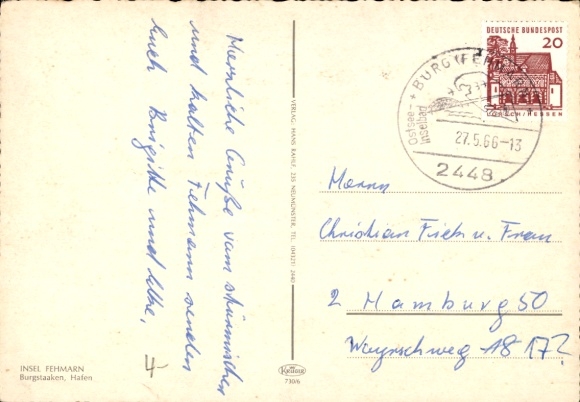 Herzliche Grüße vom stürmischen
und kalten Fehmarn senden
Euch Brigitte und Uwe.
INSEL FEHMARN
Burgstaaken, Hafen
4-
VERLAG: HANS KAHLF, 235 NEUMÜNSTER, TEL. (04321) 2440
Krüger
730/6
DEUTSCHE BUNDESPOST
20
LORSCH/HESSEN
BURG (FEHMARN)
Ostsee-
inselbad
27.5.66-13
2448
Herrn
Christian u. Frau
2 Hamburg 50
18 17?